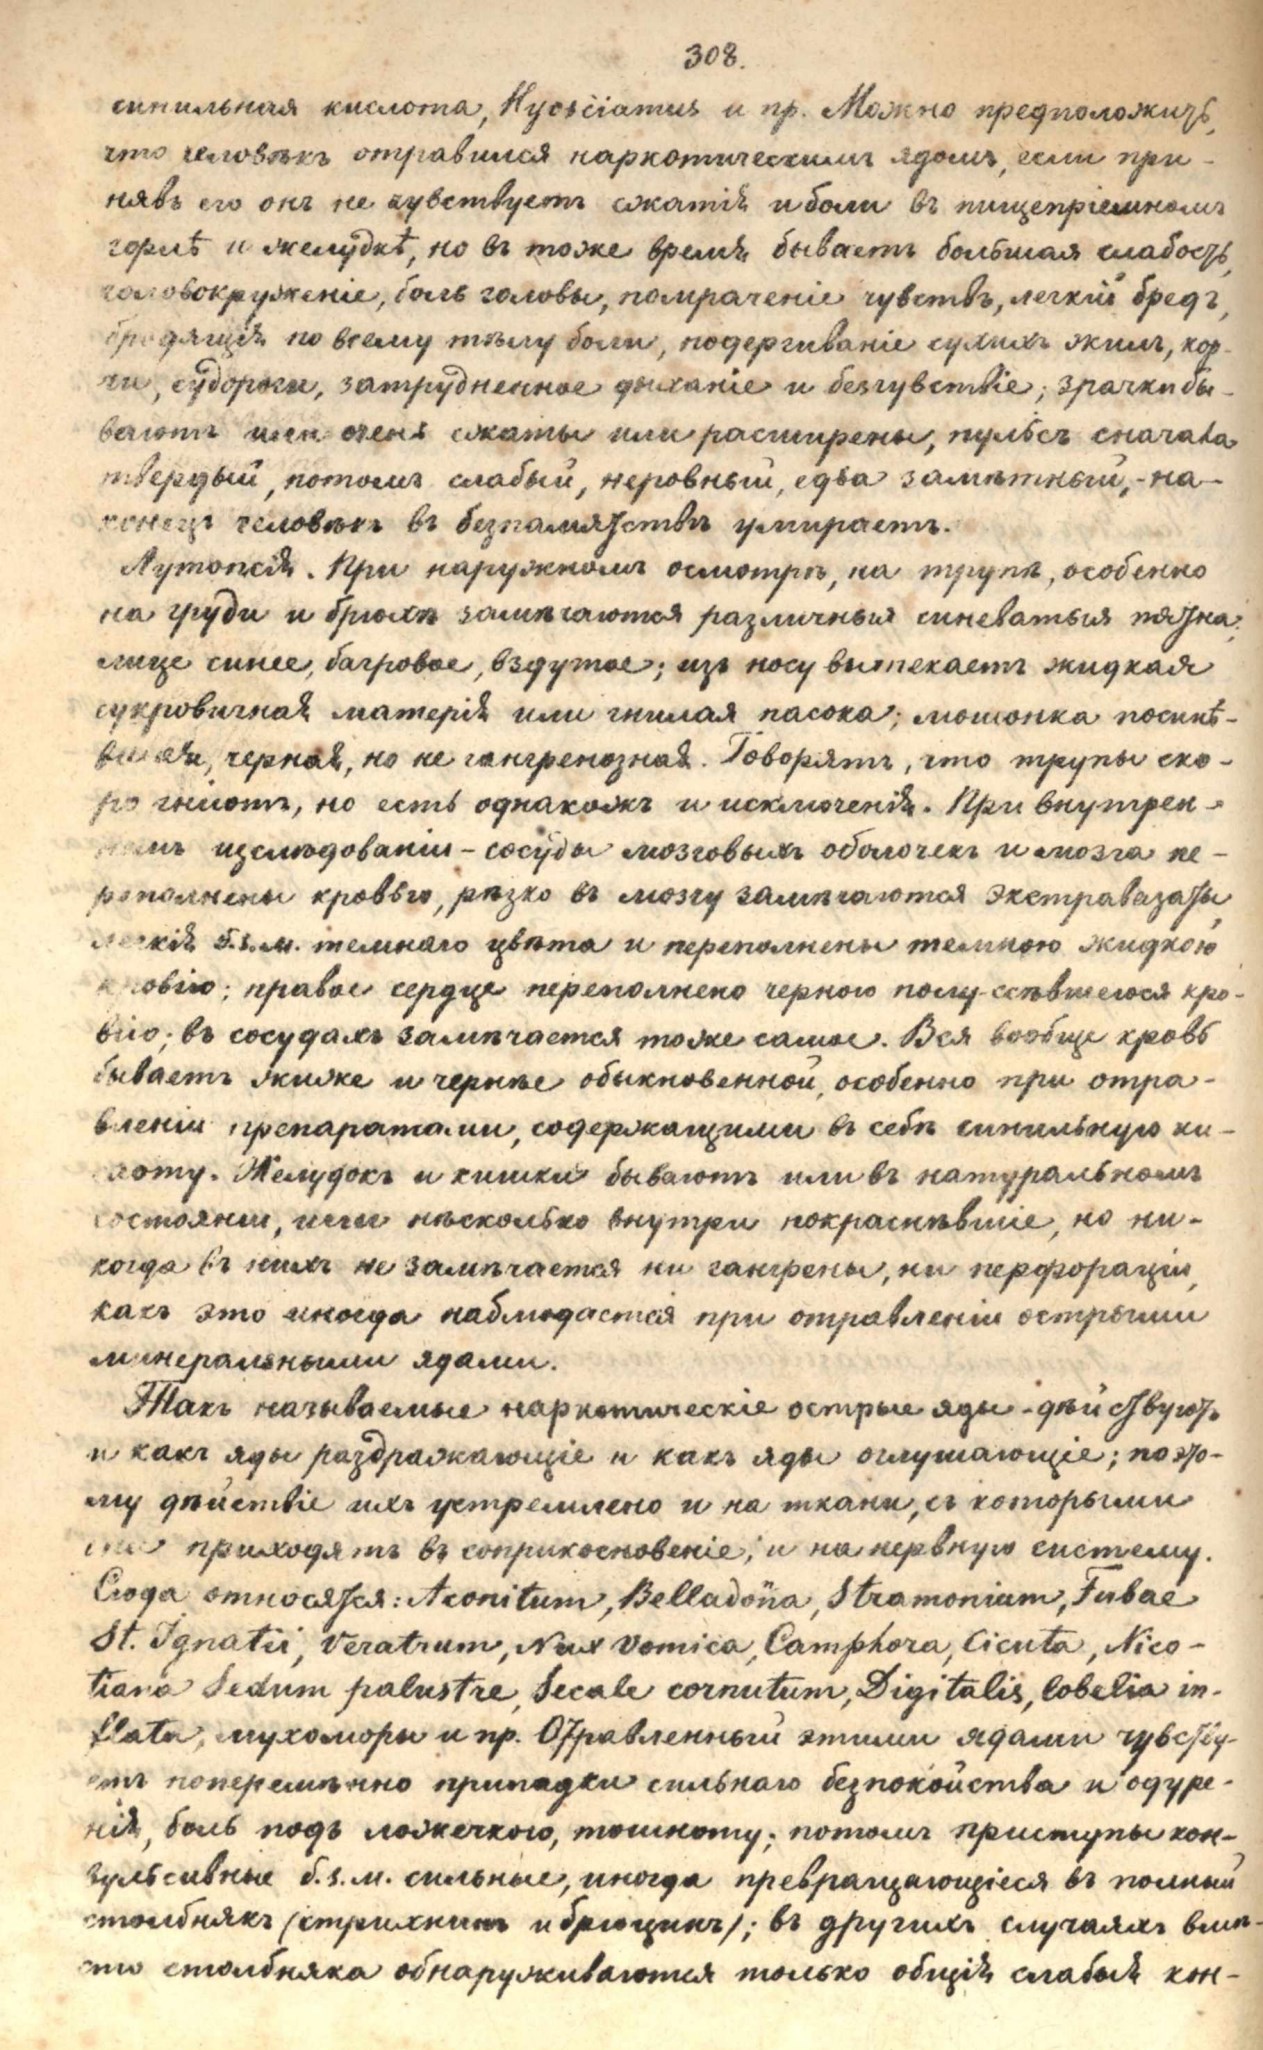 308.
синильная кислота, Hyosciamus и пр. Можно предположить,
что человѣкъ отравился наркотическимъ ядомъ, если при-
нявъ его онъ не чувствуетъ сжатія и боли въ пищепріемномъ
горлѣ и желудкѣ, но въ тоже время бываетъ большая слабость,
головокруженіе, боль головы, помраченіе чувствъ, легкій бредъ,
бродящія по всему тѣлу боли, подергиваніе сухихъ жилъ, кор-
чи, судороги, затрудненное дыханіе и безчувствіе; зрачки бы-
ваютъ или очень сжаты или расширены, пульсъ сначала
твердый, потомъ слабый, неровный, едва замѣтный, - на-
конецъ человѣкъ въ безпамятствѣ умираетъ.
Аутопсія. При наружномъ осмотрѣ, на трупѣ, особенно
на груди и брюхѣ замѣчаются различныя синеватыя пятна;
лице синее, багровое, вздутое; изъ носу вытекаетъ жидкая
сукровичная матерія или гнилая пасока; мошонка посинѣ-
вшая, черная, но не гангренозная. Говорятъ, что трупы ско-
ро гніютъ, но есть однакожъ и исключенія. При внутрен-
немъ изслѣдованіи - сосуды мозговыхъ оболочекъ и мозга пе-
реполнены кровью, рѣзко въ мозгу замѣчаются экстравазаты,
легкія б. з. м. темнаго цвѣта и переполнены темною жидкою
кровію; правое сердце переполнено черною полу-ссѣвшегося кро-
вію; въ сосудахъ замѣчается тоже самое. Вся вообще кровь
бываетъ жиже и чернѣе обыкновенной, особенно при отра-
вленіи препаратами, содержащими въ себѣ синильную ки-
слоту. Желудокъ и кишки бываютъ или въ натуральномъ
состояніи, или нѣсколько внутри покраснѣвшіе, но ни-
когда въ нихъ не замѣчается ни гангрены, ни перфораціи,
какъ это иногда наблюдается при отравленіи острыми
минеральными ядами.
Такъ называемые наркотическіе острые яды - дѣйствуютъ
и какъ яды раздражающіе и какъ яды оглушающіе; поэто-
му дѣйствіе ихъ устремлено и на ткани, съ которыми
они приходятъ въ соприкосновеніе, и на нервную систему.
Сюда относятся: Aconitum, Belladonna, Stramonium, Fabae
St. Ignatii, Veratrum, Nux Vomica, Camphora, Cicuta, Nico-
tiana Sedum palustre, Secale cornutum, Digitalis, lobelia in-
flata, мухоморы и пр. Отравленный этими ядами чувству-
етъ поперемѣнно припадки сильнаго безпокойства и одуре-
нія, боль подъ ложечкою, тошноту; потомъ приступы кон-
вульсивные б. з. м. сильные, иногда превращающіеся въ полный
столбнякъ (стрихнинъ и бруцинъ); въ другихъ случаяхъ вмѣ-
сто столбняка обнаруживаются только общія слабыя кон-